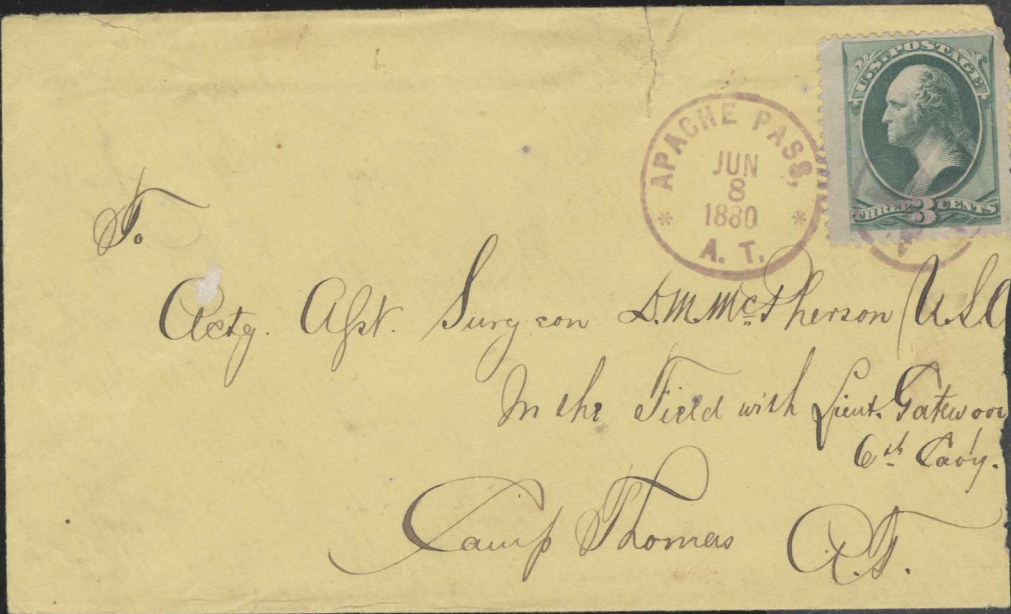 U.S. POSTAGE
THREE 3 CENTS
APACHE PASS,
JUN
8
1880
A. T.
To.
Actg. Asst. Surgeon D. M. McPherson U.S.A
In the Field with Lieut. Gatewoo
6th Cav'y.
Camp Thomas A.T.